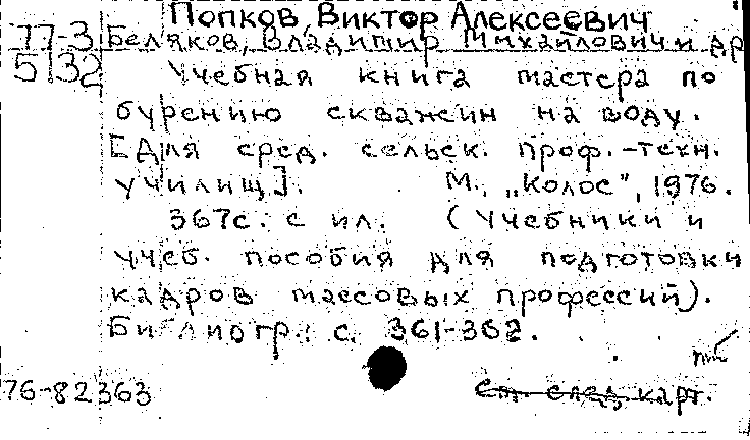 Попков, Виктор Алексеевич
77-3 Беляков, Владимир Михайлович и др
5132 Учебная книга мастера по
бурению скважин на воду.
[Для сред. сельск. проф.-техн.
училищ]. М., „Колос", 1976.
367с. с ил. (Учебники и
учеб. пособия для подготовки
кадров массовых профессий).
Библиогр.: с. 361-362.
76-82363 См. след. карт.